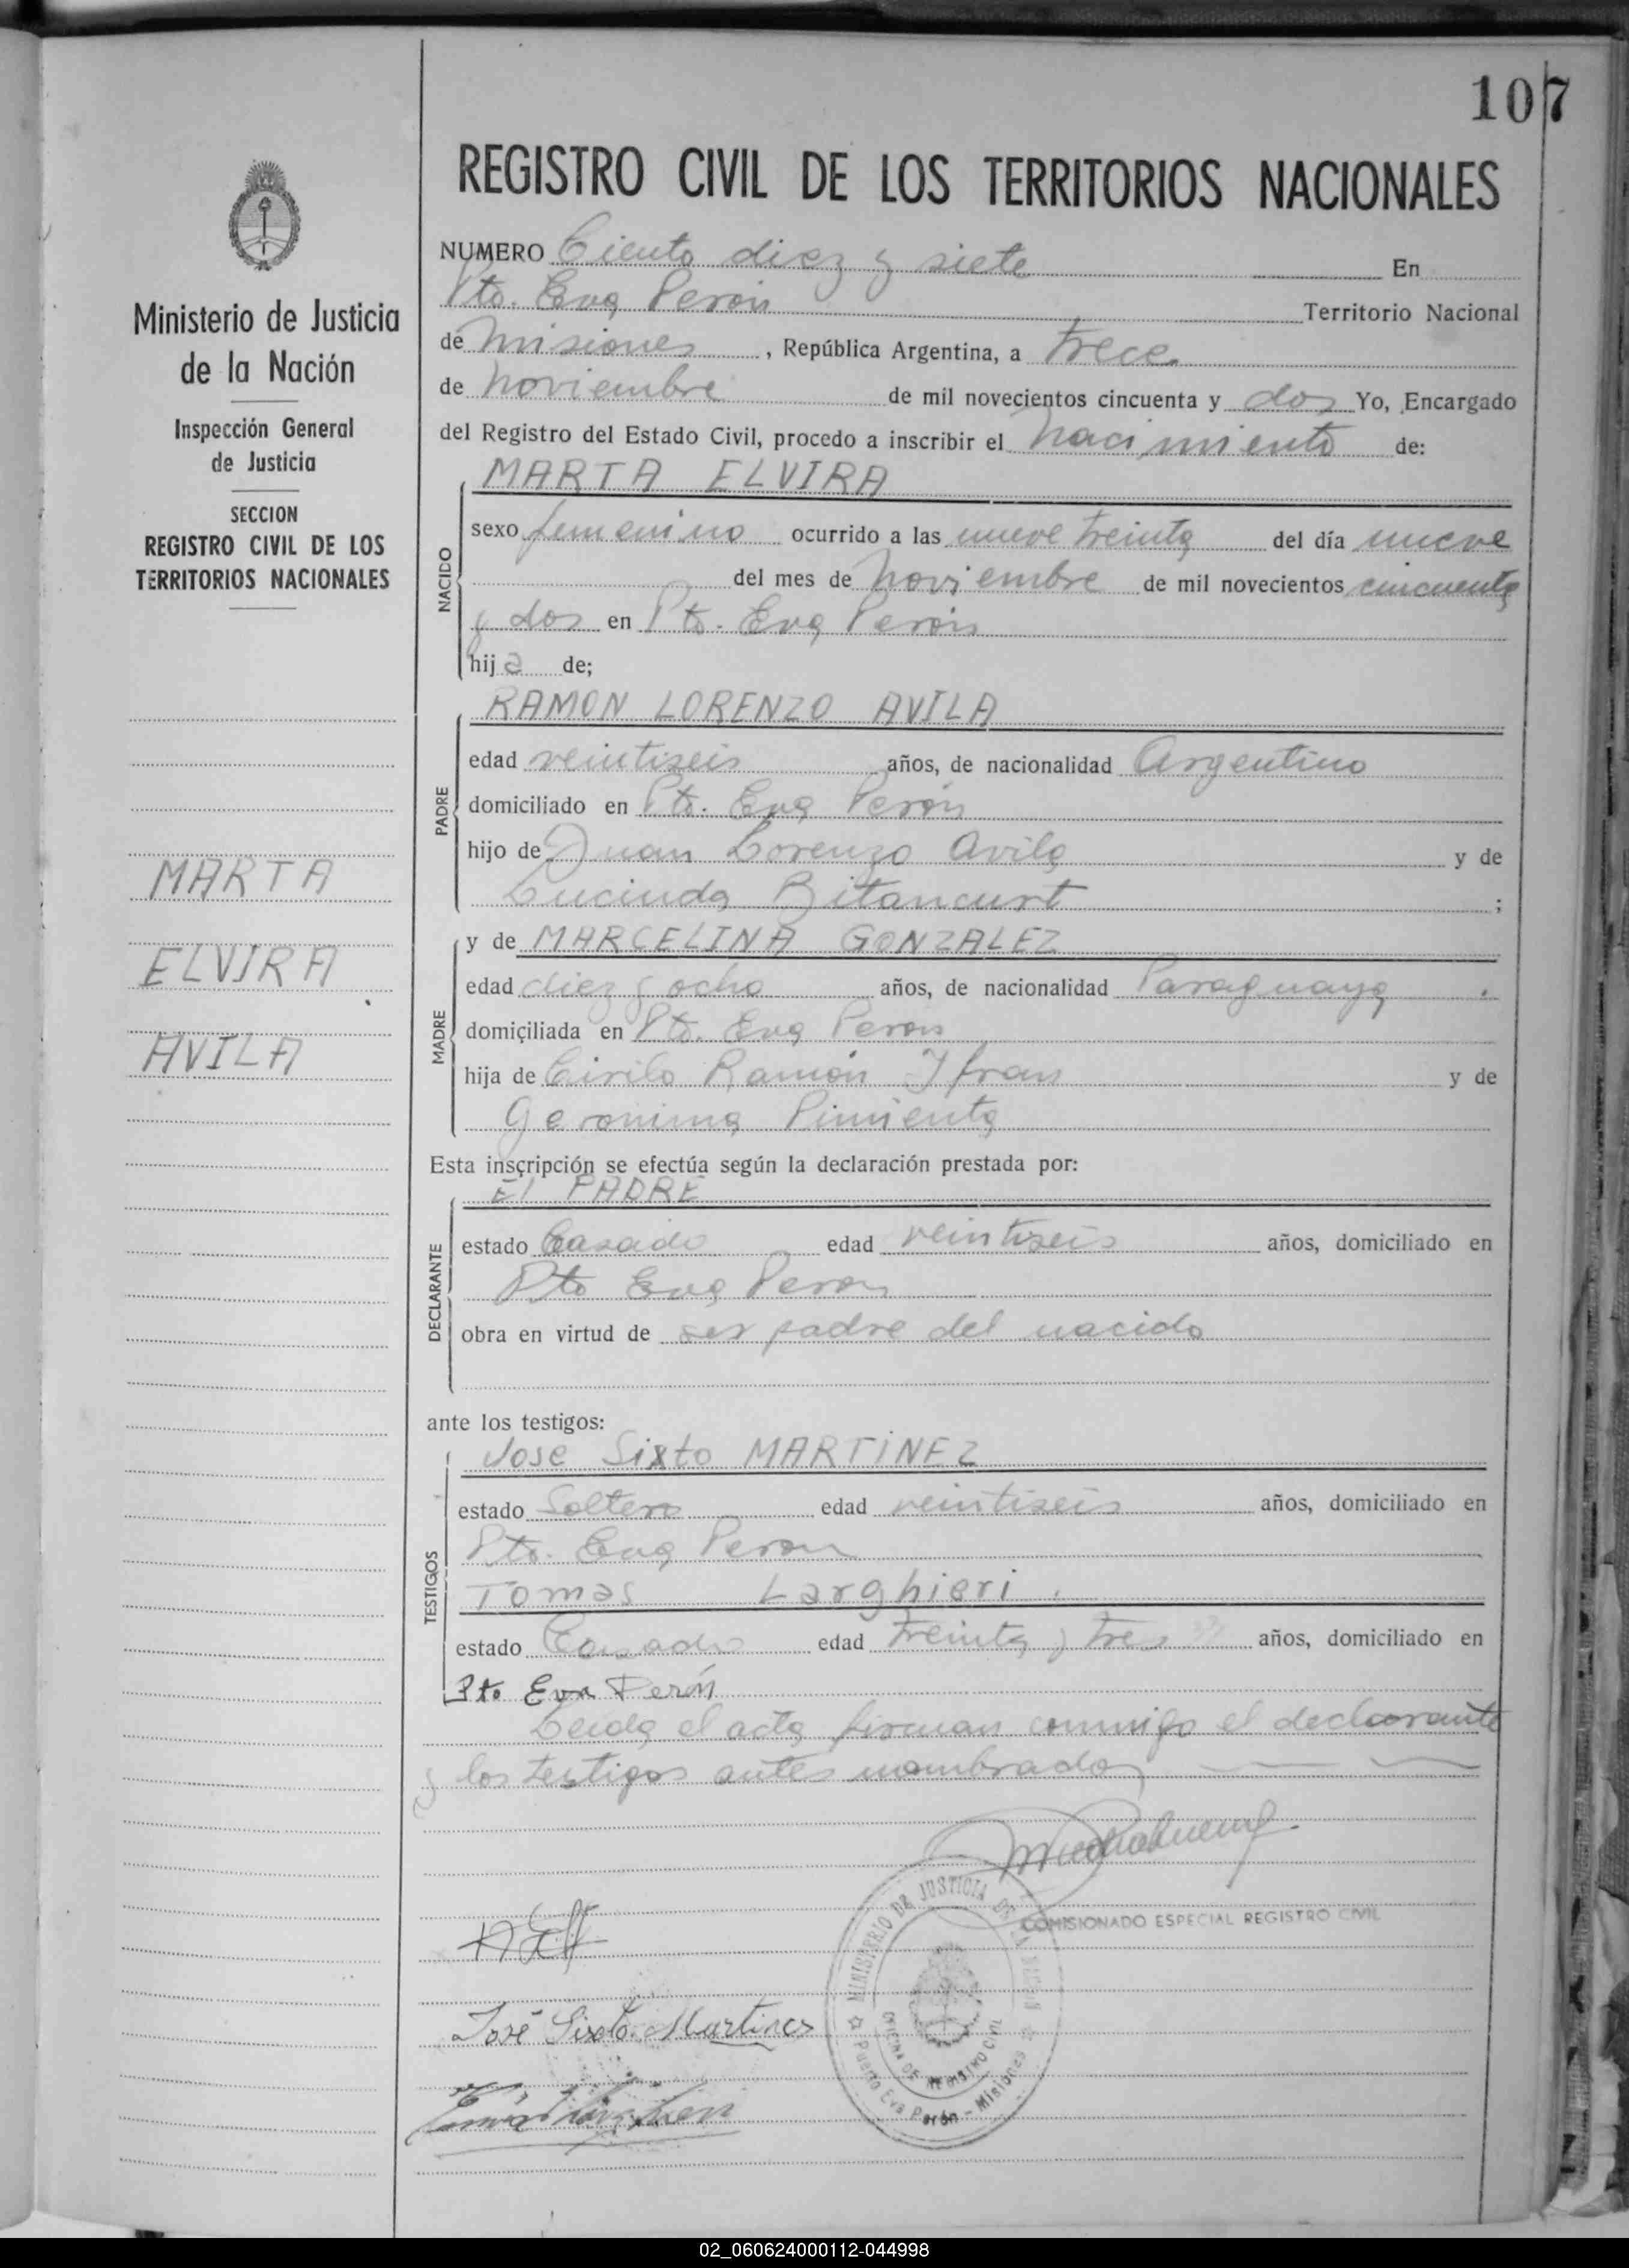 107
REGISTRO CIVIL DE LOS TERRITORIOS NACIONALES
Ministerio de Justicia
de la Nación
Inspección General
de Justicia
SECCION
REGISTRO CIVIL DE LOS
TERRITORIOS NACIONALES
MARTA
ELVIRA
AVILA
NUMERO Ciento diez y siete En
Pto. Eva Perón Territorio Nacional
de Misiones, República Argentina, a trece
de noviembre de mil novecientos cincuenta y dos Yo, Encargado
del Registro del Estado Civil, procedo a inscribir el nacimiento de:
NACIDO
MARTA ELVIRA
sexo femenino ocurrido a las nueve treinta del día nueve
del mes de noviembre de mil novecientos cincuenta
y dos en Pto. Eva Perón
hija de;
PADRE
RAMON LORENZO AVILA
edad veintiseis años, de nacionalidad Argentino
domiciliado en Pto. Eva Perón
hijo de Juan Lorenzo Avila y de
Lucinda Bitancurt ;
MADRE
y de MARCELINA GONZALEZ
edad diez y ocho años, de nacionalidad Paraguaya
domiciliada en Pto. Eva Peron
hija de Cirilo Ramón Ifran y de
Geronima Pimienta
Esta inscripción se efectúa según la declaración prestada por:
DECLARANTE
El PADRE
estado Casado edad veintiseis años, domiciliado en
Pto Eva Peron
obra en virtud de ser padre del nacido
ante los testigos:
TESTIGOS
Jose Sixto MARTINEZ
estado Soltero edad veintiseis años, domiciliado en
Pto. Eva Peron
Tomas Larghieri.
estado Casado edad treinta y tres años, domiciliado en
Pto Eva Perón
Leida el acta firman conmigo el declarante
y los testigos antes nombrados
COMISIONADO ESPECIAL REGISTRO CIVIL
MINISTERIO DE JUSTICIA DE LA NACION
OFICINA DE REGISTRO CIVIL
Puerto Eva Perón - Misiones
José Sixto Martinez
02_060624000112-044998